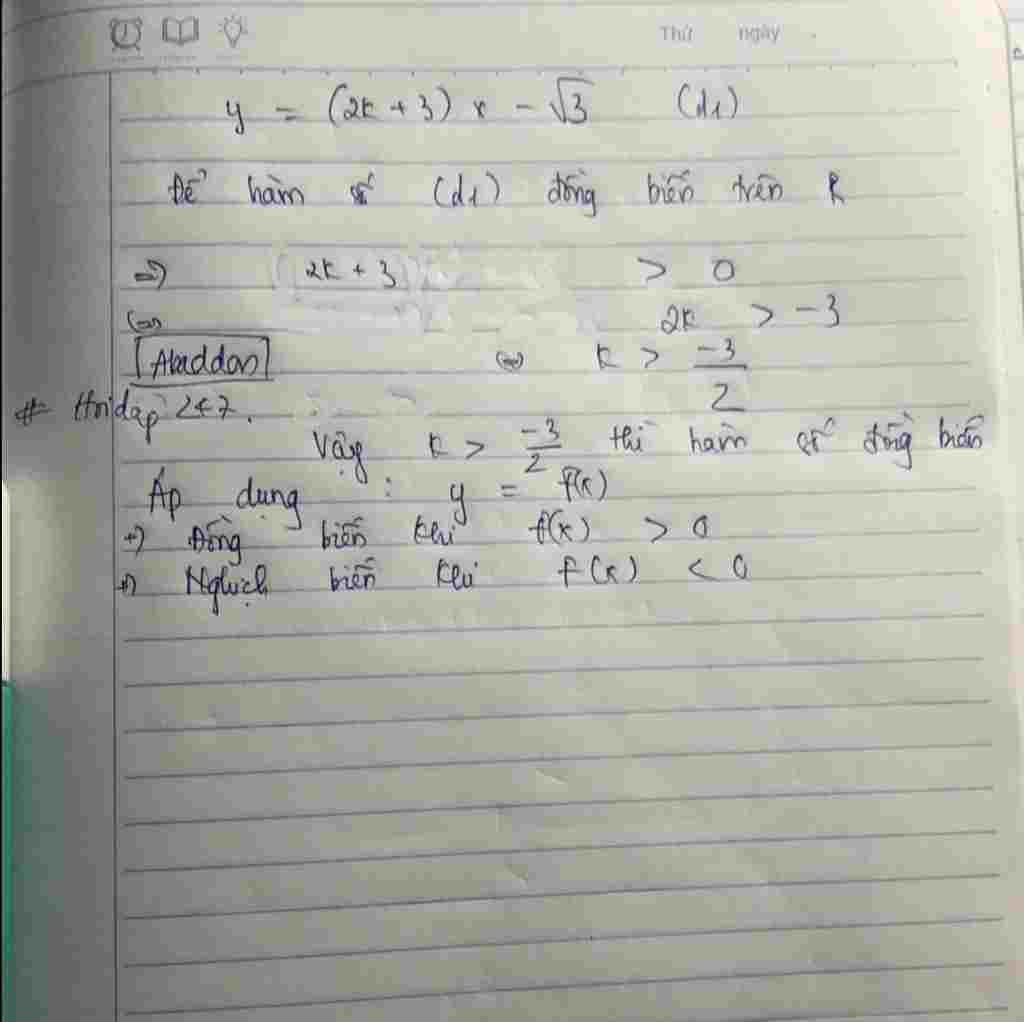 Thứ ngày
y = (2k + 3) x - √3 (d1)
Để hàm số (d1) đồng biến trên R
=> (2k + 3) > 0
(=) 2k > -3
Abaddon (=) k > -3/2
# Hoidap247.
Vậy k > -3/2 thì hàm số đồng biến
Áp dụng : y = f(x)
+) Đồng biến khi f(x) > 0
+) Nghịch biến khi f(x) < 0